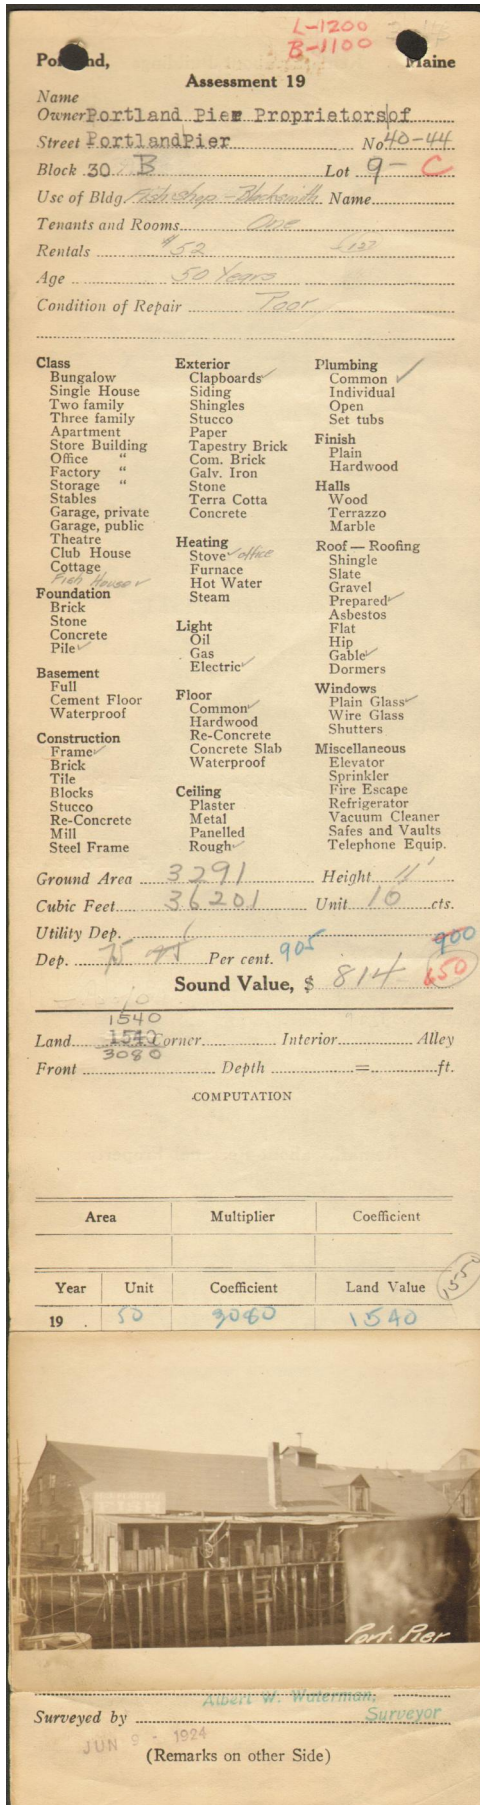 L-1200
B-1100
Portland, Maine
Assessment 19
Name
Owner Portland Pier Proprietors of
Street Portland Pier No 40-44
Block 30 B Lot 9- C
Use of Bldg. Fish shop - Blacksmith Name
Tenants and Rooms One
Rentals $52
Age 50 Years
Condition of Repair Poor
Class
Bungalow
Single House
Two family
Three family
Apartment
Store Building
Office "
Factory "
Storage "
Stables
Garage, private
Garage, public
Theatre
Club House
Cottage
Fish House ✓
Foundation
Brick
Stone
Concrete
Pile ✓
Basement
Full
Cement Floor
Waterproof
Construction
Frame ✓
Brick
Tile
Blocks
Stucco
Re-Concrete
Mill
Steel Frame
Exterior
Clapboards ✓
Siding
Shingles
Stucco
Paper
Tapestry Brick
Com. Brick
Galv. Iron
Stone
Terra Cotta
Concrete
Heating
Stove ✓ office
Furnace
Hot Water
Steam
Light
Oil
Gas
Electric ✓
Floor
Common ✓
Hardwood
Re-Concrete
Concrete Slab
Waterproof
Ceiling
Plaster
Metal
Panelled
Rough ✓
Plumbing
Common ✓
Individual
Open
Set tubs
Finish
Plain
Hardwood
Halls
Wood
Terrazzo
Marble
Roof — Roofing
Shingle
Slate
Gravel
Prepared ✓
Asbestos
Flat
Hip
Gable ✓
Dormers
Windows
Plain Glass ✓
Wire Glass
Shutters
Miscellaneous
Elevator
Sprinkler
Fire Escape
Refrigerator
Vacuum Cleaner
Safes and Vaults
Telephone Equip.
Ground Area 3291 Height 11'
Cubic Feet 36201 Unit 10 cts.
Utility Dep.
900
Dep. 75 75 Per cent. 905
Sound Value, $ 814 650
1540
Land 1540 Corner Interior Alley
3080
Front Depth = ft.
COMPUTATION
Area Multiplier Coefficient
Year Unit Coefficient Land Value 1550
19 . 50 3080 1540
FISH
Port. Pier
Albert W. Waterman,
Surveyed by Surveyor
JUN 9 - 1924
(Remarks on other Side)